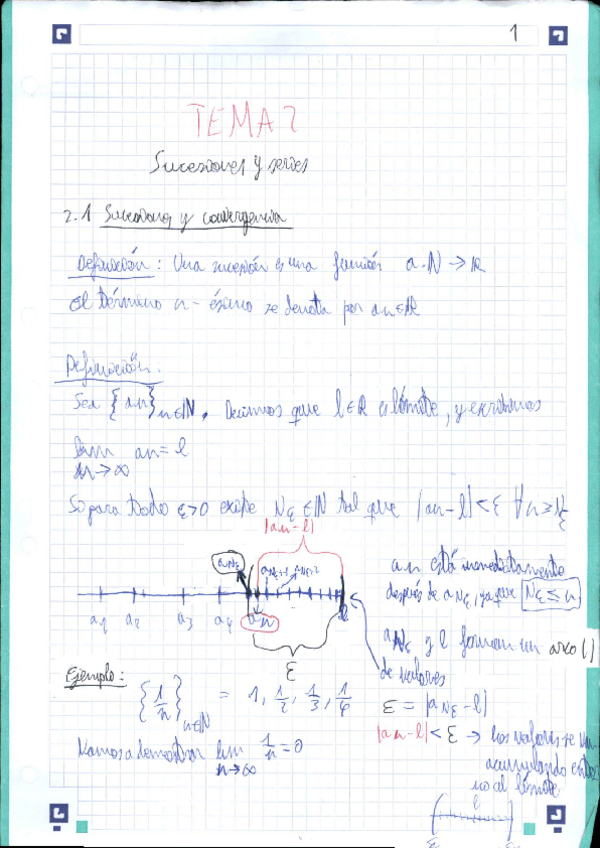 1
TEMA 2
Sucesiones y series
2.1 Sucesiones y convergencia
Definición: Una sucesión es una función a: N → R
El término n-ésimo se denota por an ∈ R
Definición:
Sea {an}n∈N. Decimos que l ∈ R es límite, y escribimos
lim an = l
n→∞
Si para todo ε>0 existe Nε ∈ N tal que |an-l| < ε ∀n ≥ Nε
|an-l|
aNε aNε+1 aNε+2
a1 a2 a3 a4 an l
ε
an está inmediatamente
después de aNε, ya que Nε ≤ n
aNε y l forman un arco ()
de valores
ε = |aNε-l|
|an-l| < ε → los valores se van
acumulando entorno al límite
Ejemplo:
{1/n}n∈N = 1, 1/2, 1/3, 1/4
Vamos a demostrar lim 1/n = 0
n→∞
l
ε ε